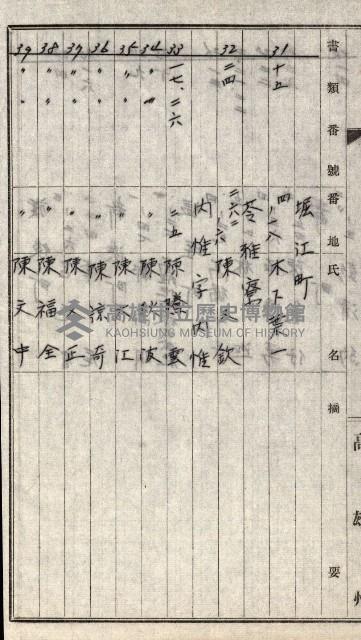 書類番號 番地 氏名 摘要
堀江町
31 十五 四ノ一八 木下峯一
苓雅寮
32 二四 二六二ノ六 陳 欽
内惟字内惟
33 一七、二六 二五 陳 雲
34 〃 〃 〃 陳 波
35 〃 〃 〃 陳 江
36 〃 〃 〃 陳 奇
37 〃 〃 〃 陳 正
38 〃 〃 〃 陳福全
39 〃 〃 〃 陳文中
高雄州
高雄市立歷史博物館
KAOHSIUNG MUSEUM OF HISTORY